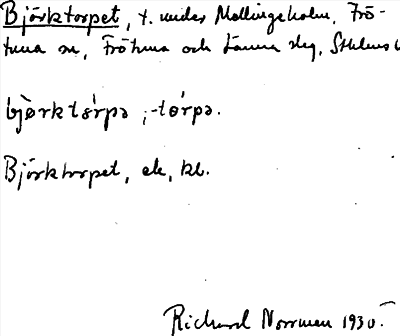 Björktorpet, t. under Mallingeholm, Frö-
tuna sn, Frötuna och Länna slg, Sthlms l
bjørktò̀rpə ; -tørpə.
Björktorpet, ek, kl.
Richard Norrman 1930.